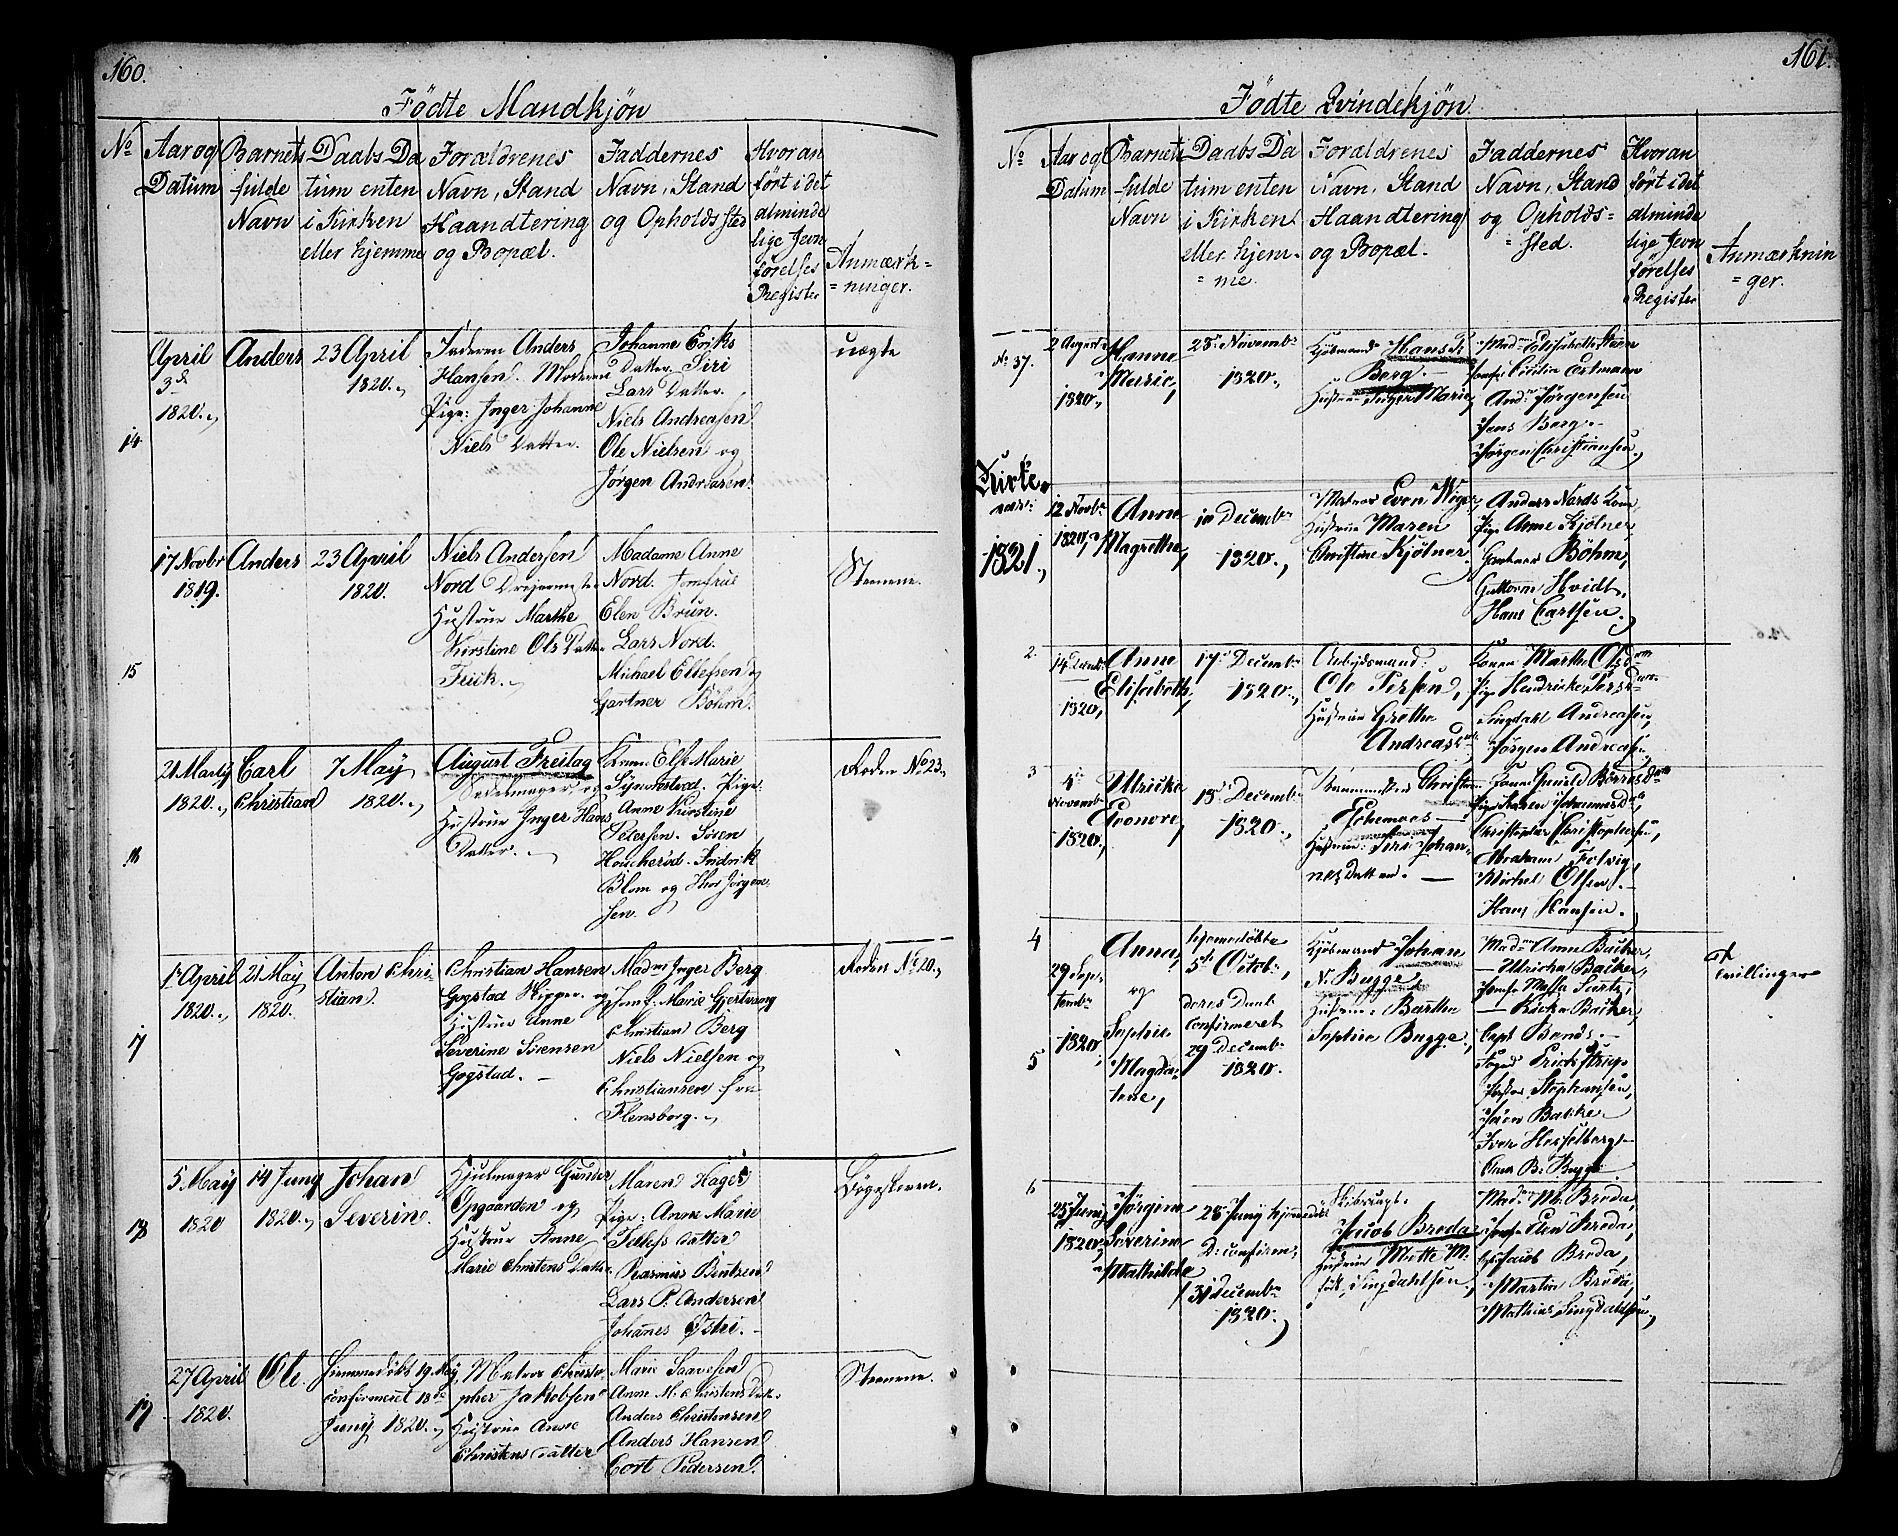 160.
Födte Mandkjön
No
Aar og
Datum
Barnets
fulde
Navn
Daabs Da
tum enten
i Kirken
eller hjemme
Foraldrenes
Navn, Stand
Haandtering
og Bopæl.
Faddernes
Navn, Stand
og Opholdssted
Hvor an
fört i det
alminde
lige Jevn
förelses
Register
Anmærk=
=ninger.
14
April
3d
1820.
Anders
23 April
1820.
Faderen Anders
Hansen. Moderen
Pige: Inger Johanne
Niels Datter.
Johanne Eriks
Datter. Siri
Lars Datter.
Niels Andreasen
Ole Nielsen og
Jörgen Andreasen.
uægte
15
17 Novbr
1819.
Anders
23 April
1820.
Niels Andersen
Nord Dreiermester
Hustrue Marthe
Kirstine Ols Datter
Feick.
Madame Anne
Nord. Jomfrue
Elen Brun.
Lars Nord.
Michael Ellefsen og
Gartner Böhm.
Steenene.
16
21 Marty
1820.
Carl
Christian
7 May
1820.
August Freitag
og
Hustrue Inger Hans
Datter.
Kone: Else Marie
Pige:
Anne Kirstine
Petersen. Sören
Houcheröd. Fridrik
Blom og Thor Jörgen
sen.
Roden No 23.
17
1 April
1820.
21 May
1820.
Anton Chri-
stian
Christian Hansen
Gogstad Skipper. og
Hustrue Anne
Severine Sörensen
Gogstad.
Madme Inger Berg
Jomf: Marie Gjertvang
Christian Berg
Niels Nielsen og
Christiansen fra
Flensborg.
Roden No 20.
18
5 May
1820
14 Juny
1820.
Johan
Severin.
Hjulmager Gunder
Opgaarden og
Hustrue Anne
Marie Christens Datter.
Maren Hages
Pige: Anne Marie
Tellefs Datter
Rasmus Bentsen
Lars P. Andersen
Johanes Östri.
Bögeskoven.
19
27 April
1820.
Ole.
Hiemmedöbt 19 May,
confirmeret 18de
Juny 1820.
Matros Christo
pher Jakobsen
Hustrue Anne
Christens Datter
Marie Saavesen
Anne M. Christens Datt.
Anders Christensen
Anders Hansen
Cort Pedersen.
Steenene.
161.
Födte Qvindekjön
No
Aar og
Datum
Barnets
fulde
Navn
Daabs Da
tum enten
i Kirken
eller hjem-
=me.
Foraldrenes
Navn, Stand
Haandtering
og Bopæl.
Faddernes
Navn, Stand
og Opholds=
=sted.
Hvor an
fört i det
alminde
lige Jevn
förelses
Register
Anmærknin
=ger.
No 37.
2 August
1820,
Hanne
Merrie,
25 Novemb
1820.
Kjöbmand Hans P.
Berg.
Hustrue Inger Marie,
Cecilia Cortmann
And. Jörgensen
Jens Berg.
Jörgen Christiansen.
Kirke-
aar
1821.
12 Novbr
1820,
Anne
Magrethe,
10 Decembr
1820.,
Matros Even
Hustrue Maren
Christine Kjölner.
Anders Nords Kone
Pige Anne Kjölner,
Gartner Böhm,
Guttorm Hvidt,
Hans Carlsen.
2.
14
1820,
Anne
Elisabeth,
17 Decembr
1820.,
Arbejdsmand:
Ole Persen,
Hustrue Grethe
Andreasd
Konen Marthe Olsd
Pige Hendricke Larsd
Lingdahl Andreasen,
Jörgen Andreas
3
4
Novemb
1820,
Ulricke
Eronore,
15 Decembr
1820.,
Christen
Echernaes
Hustrue Siri Johan-
nesdatter.
Pige Karen Johannesd
Christopher Christophersen,
Abraham Folvig,
Michel Olsen
Hans Hansen.
4
5
29 Sep
tembr
1820
Anna,
og
Sophie
Magda-
lene,
hjemedöbte
5te Octob,
deres Daab
confirmeret
29 Decembr
1820.
Kjöbmand Johan
N. Bugge
Hustrue Barthe
Sophie Bugge,
Mad Anne Backer,
— Ulricha Backer,
— Ricka Backer,
Capt Bonds
Stephansen,
Sören Backe
Iver Hesselberg
Anna B. Bugge
Tvillinger
6
25 Juny
1820
Jörgine
Severine
Mathilde
28 Juny hjemedöbt
D: confirm,
31 Decembr
1820.
Skibscapt.
Jacob Breda
Hustrue Mette M.
föd, Lingdahlsen,
Mad M. Breda,
Jomf Elen Breda,
Jacob Breda,
Martin Breda,
Mathias Lingdahlsen,